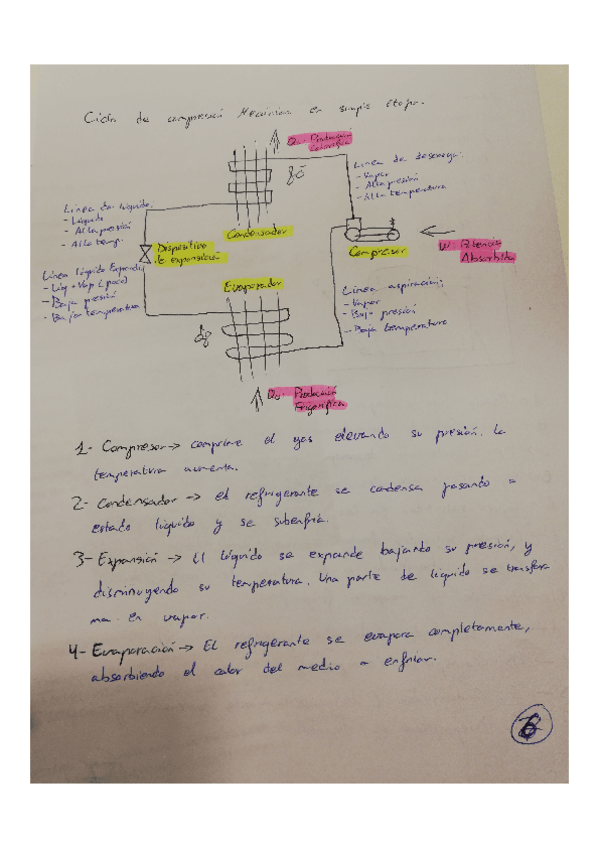 Ciclo de compresión Mecánica en simple etapa.
Qc: Producción
Calorífica
Línea de descarga:
- Vapor
- Alta presión
- Alta temperatura
Línea de líquido:
- Líquido
- Alta presión
- Alta temp.
Condensador
Compresor
W: Potencia
Absorbida
Dispositivo
de expansión
Línea líquido Expandido
- Líq + Vap (poco)
- Baja presión
- Baja temperatura
Evaporador
Línea aspiración:
- Vapor
- Baja presión
- Baja temperatura
Qo: Producción
Frigorífica
1- Compresor -> comprime el gas elevando su presión. La
temperatura aumenta.
2- Condensador -> el refrigerante se condensa pasando a
estado líquido y se subenfría.
3- Expansión -> El líquido se expande bajando su presión, y
disminuyendo su temperatura. Una parte de líquido se transfor
ma en vapor.
4- Evaporación -> El refrigerante se evapora completamente,
absorbiendo el calor del medio a enfriar.